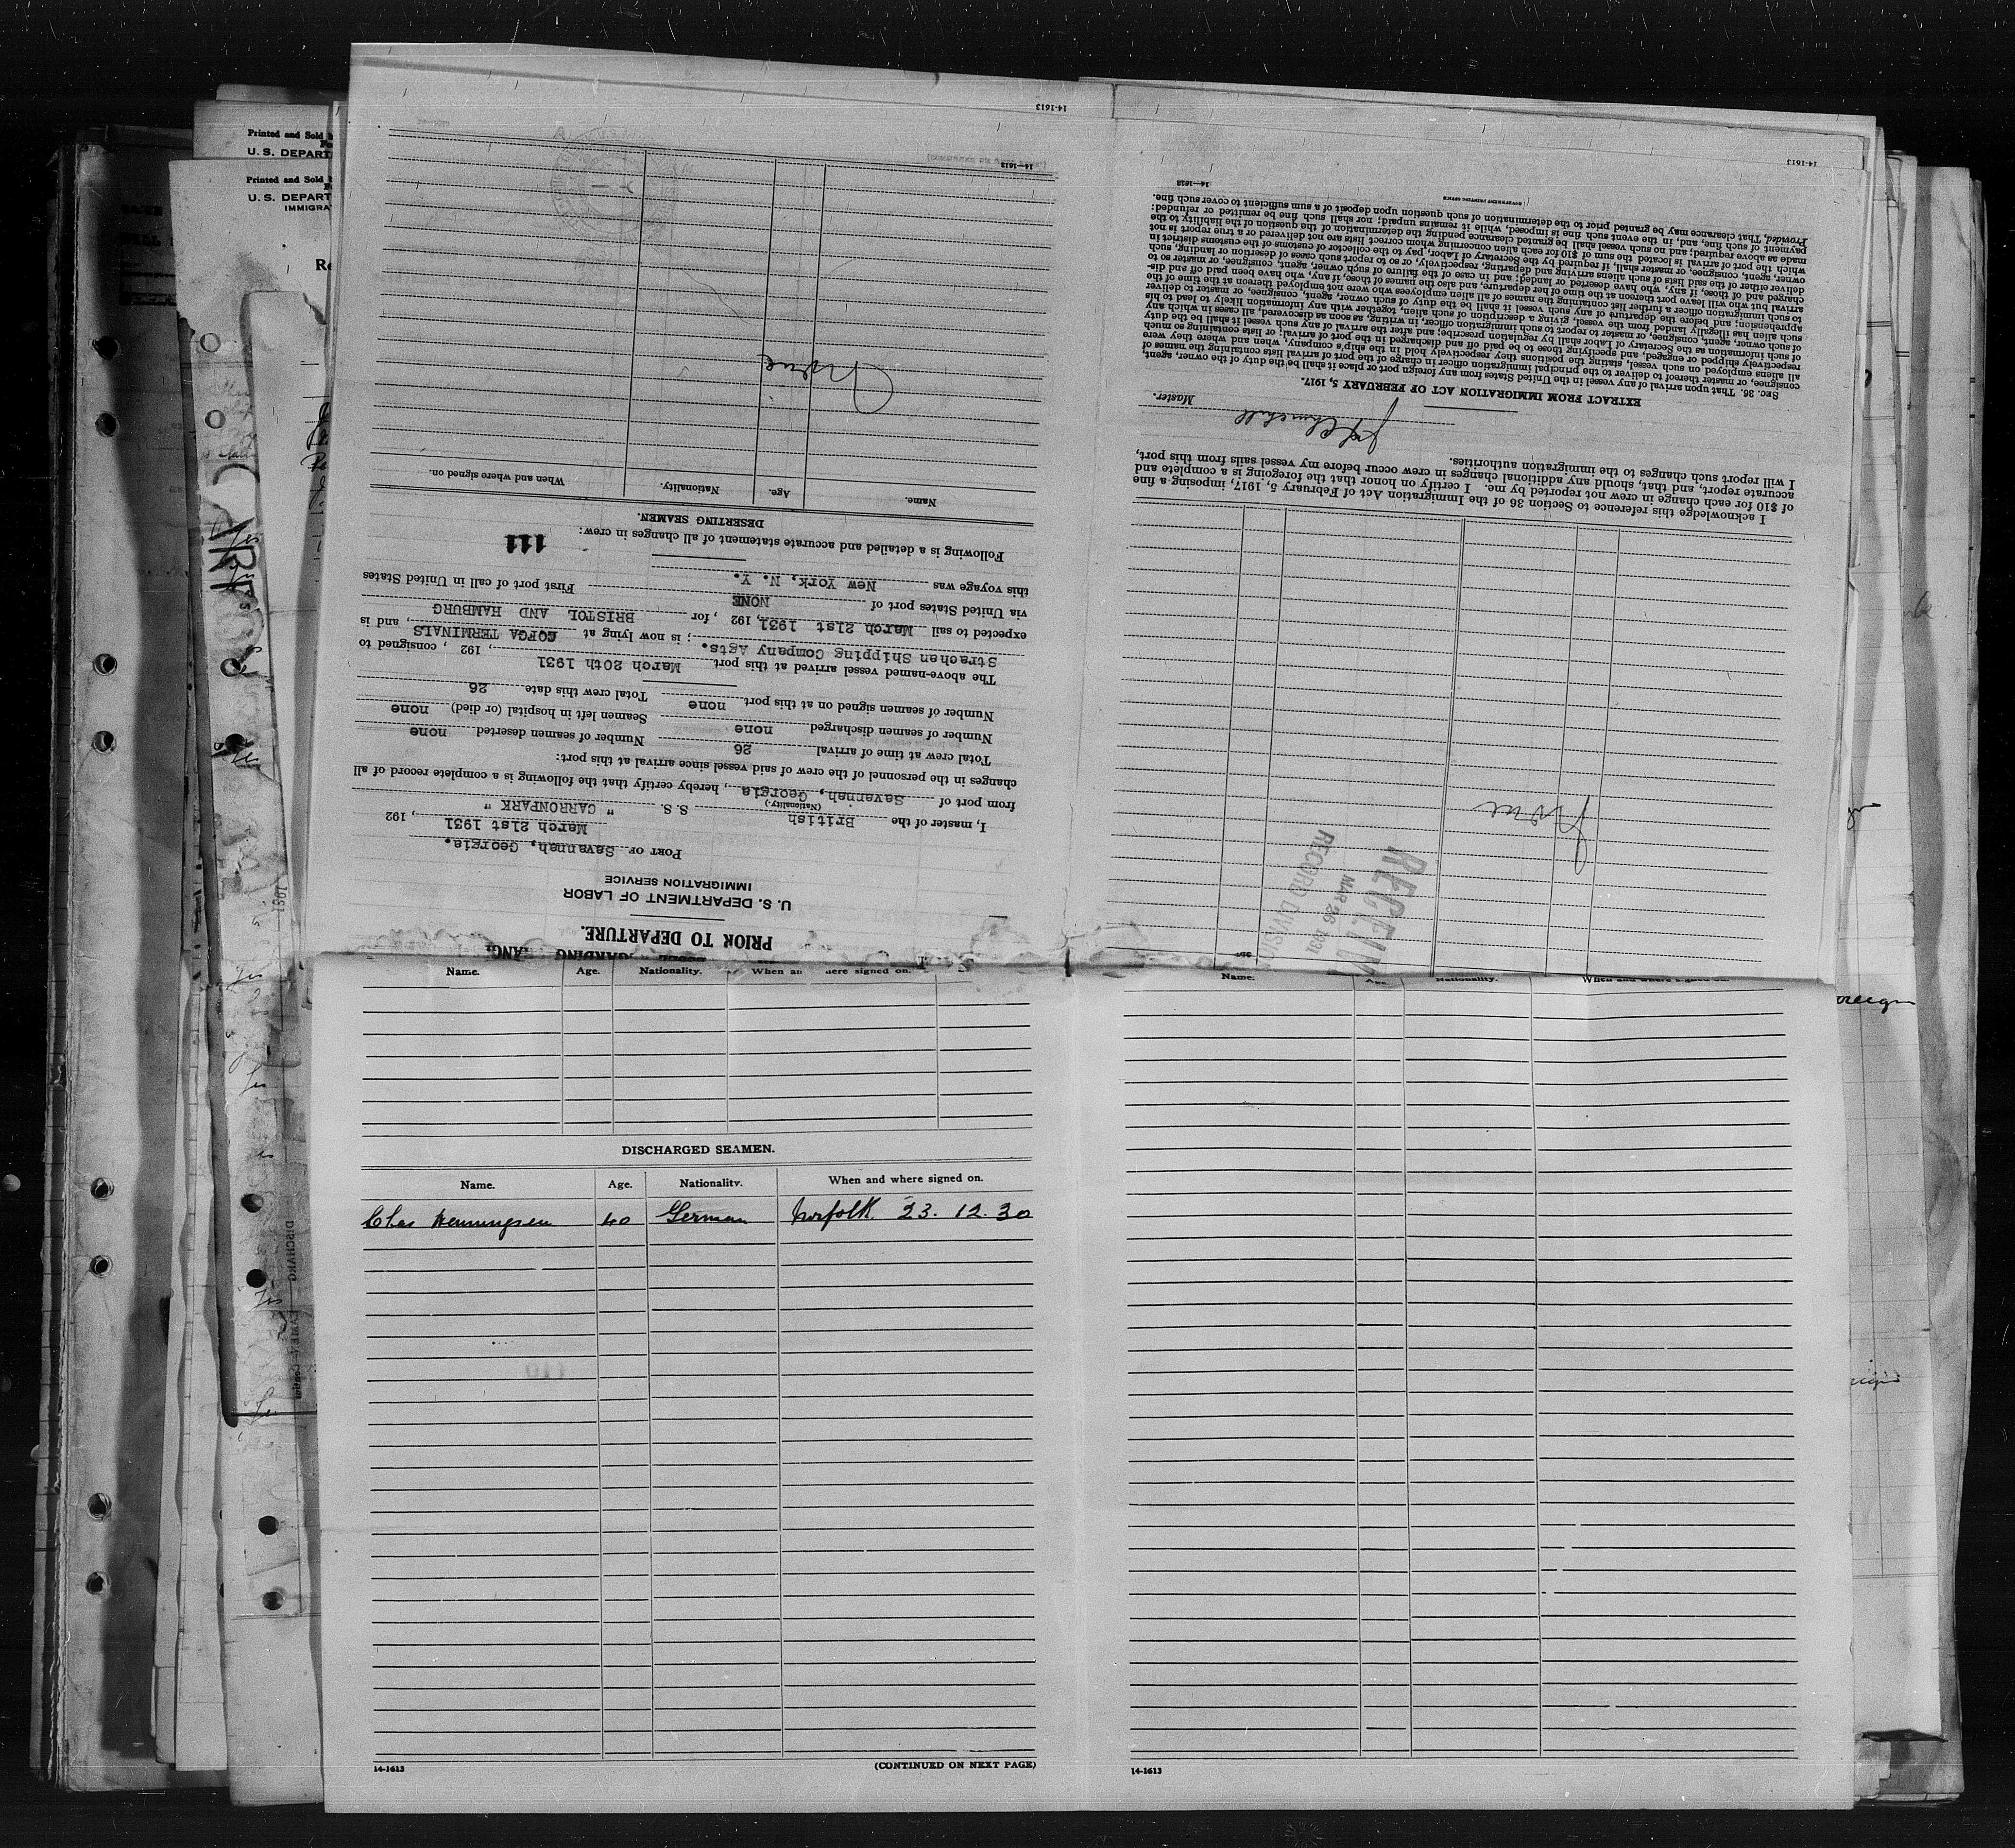 PRIOR TO DEPARTURE.
U. S. DEPARTMENT OF LABOR
IMMIGRATION SERVICE
PORT OF Savannah, Georgia.
March 21st 1931, 192
I, master of the British S. S. " CARRONPARK "
(Nationality.)
from port of Savannah, Georgia, hereby certify that the following is a complete record of all
changes in the personnel of the crew of said vessel since arrival at this port:
Total crew at time of arrival 26 Number of seamen deserted none
Number of seamen discharged none Seamen left in hospital (or died) none
Number of seamen signed on at this port none Total crew this date 26
The above-named vessel arrived at this port March 20th 1931, 192 , consigned to
Strachan Shipping Company Agts. ; is now lying at COFGA TERMINALS, and is
expected to sail March 21st 1931, 192 , for BRISTOL AND HAMBURG
via United States port of NONE
this voyage was New York, N. Y. First port of call in United States
Following is a detailed and accurate statement of all changes in crew:
111
DESERTING SEAMEN.
Name. Age. Nationality. When and where signed on.
None
14—1613
14-1613
RECEIVED
MAR 26 1931
RECORD DIVISION
None
I acknowledge this reference to Section 36 of the Immigration Act of February 5, 1917, imposing a fine
of $10 for each change in crew not reported by me. I certify on honor that the foregoing is a complete and
accurate report, and that, should any additional changes in crew occur before my vessel sails from this port,
I will report such changes to the immigration authorities.
Master.
EXTRACT FROM IMMIGRATION ACT OF FEBRUARY 5, 1917.
SEC. 36. That upon arrival of any vessel in the United States from any foreign port or place it shall be the duty of the owner, agent,
consignee, or master thereof to deliver to the principal immigration officer in charge of the port of arrival lists containing the names of
all aliens employed on such vessel, stating the positions they respectively hold in the ship's company, when and where they were
respectively shipped or engaged, and specifying those to be paid off and discharged in the port of arrival; or lists containing so much
of such information as the Secretary of Labor shall by regulation prescribe; and after the arrival of any such vessel it shall be the duty
of such owner, agent, consignee, or master to report to such immigration officer, in writing, as soon as discovered, all cases in which any
such alien has illegally landed from the vessel, giving a description of such alien, together with any information likely to lead to his
apprehension; and before the departure of any such vessel it shall be the duty of such owner, agent, consignee, or master to deliver
to such immigration officer a further list containing the names of all alien employees who were not employed thereon at the time of the
arrival but who will leave port thereon at the time of her departure, and also the names of those, if any, who have been paid off and dis-
charged and of those, if any, who have deserted or landed; and in case of the failure of such owner, agent, consignee, or master so to
deliver either of the said lists of such aliens arriving and departing, respectively, or so to report such cases of desertion or landing, such
owner, agent, consignee, or master shall, if required by the Secretary of Labor, pay to the collector of customs of the customs district in
which the port of arrival is located the sum of $10 for each alien concerning whom correct lists are not delivered or a true report is not
made as above required; and no such vessel shall be granted clearance pending the determination of the question of the liability to the
payment of such fine, and, in the event such fine is imposed, while it remains unpaid; nor shall such fine be remitted or refunded:
Provided, That clearance may be granted prior to the determination of such question upon deposit of a sum sufficient to cover such fine.
GOVERNMENT PRINTING OFFICE
14—1613
14-1613
Name. Age. Nationality. When and where signed on.
DISCHARGED SEAMEN.
Name. Age. Nationality. When and where signed on.
Chas Henningsen 40 German Norfolk 23. 12. 30
14-1613
(CONTINUED ON NEXT PAGE)
Name. Age. Nationality. When and where signed on.
14-1613
Printed and Sold
U. S. DEPART
Printed and Sold
U. S. DEPART
IMMIGRA